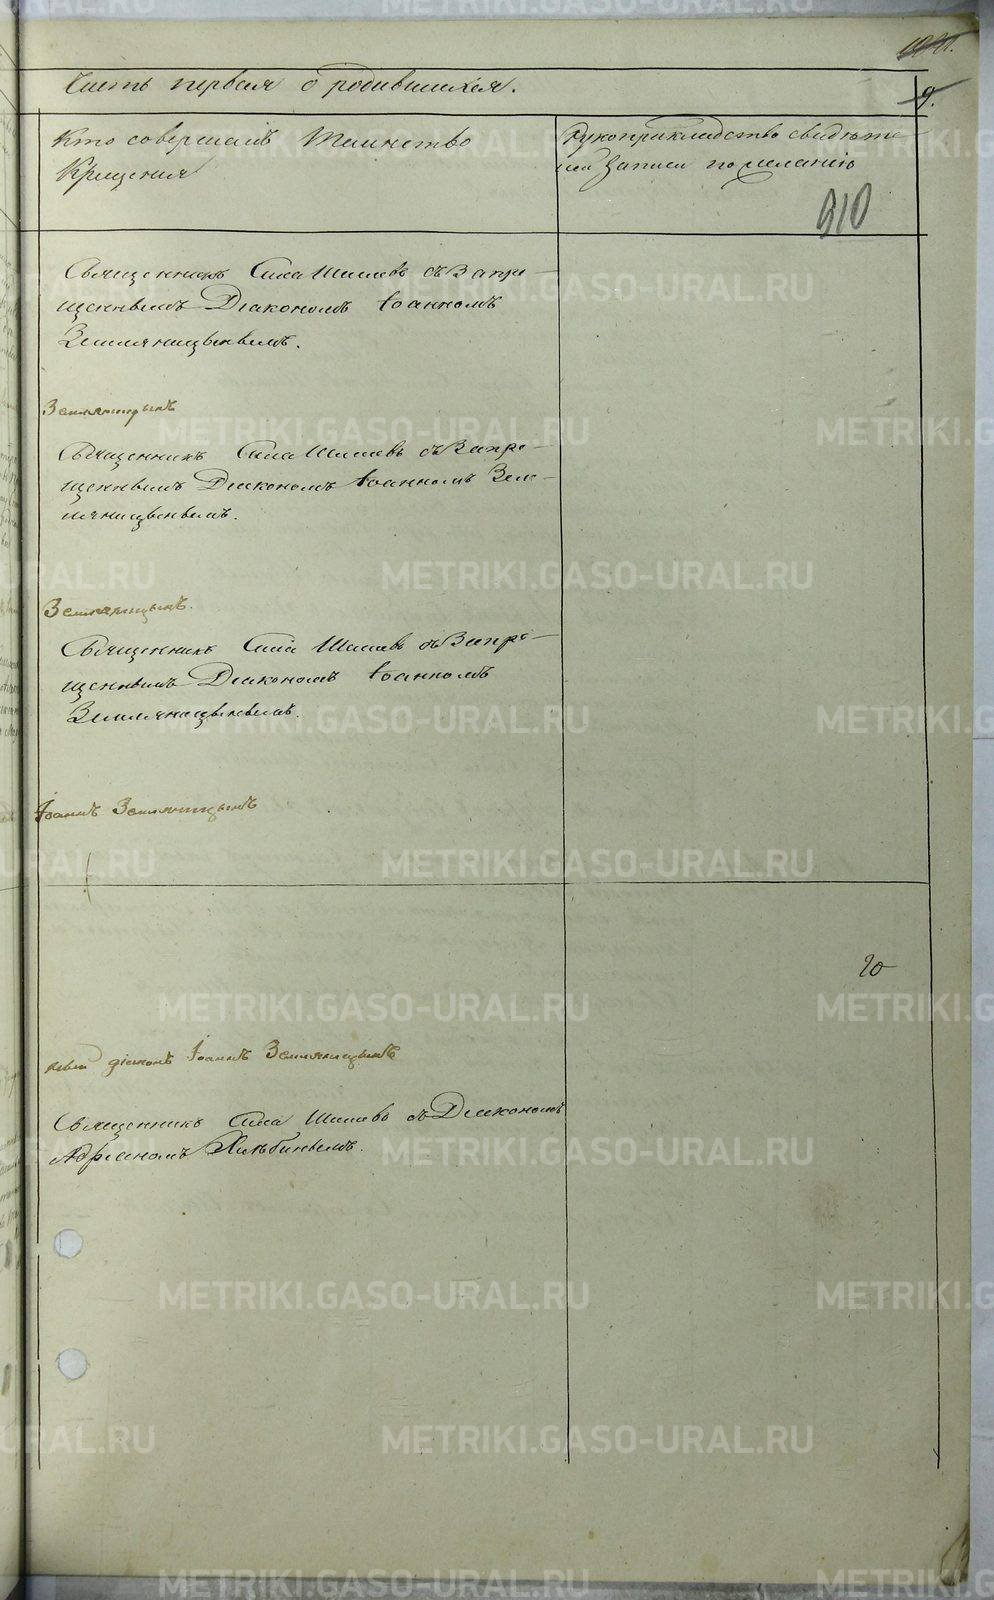 Часть первая о родившихся.
9.
Кто совершалъ Таинство
Крещения
Рукоприкладство свидѣте-
лей записи по желанію
910
Священникъ Сила Шишевъ съ Запре-
щеннымъ Діакономъ Іоанномъ
Земляницынымъ.
Земляницынъ
Священникъ Сила Шишевъ съ Запре-
щеннымъ Діакономъ Іоанномъ Зем-
ляницынымъ.
Земляницынъ.
Священникъ Сила Шишевъ съ Запре-
щеннымъ Діакономъ Іоанномъ
Земляницынымъ.
Іоаннъ Земляницынъ
20
ный діаконъ Іоаннъ Земляницынъ
Священникъ Сила Шишевъ съ Діакономъ
Адріаномъ Хлѣбинымъ.
METRIKI.GASO-URAL.RU